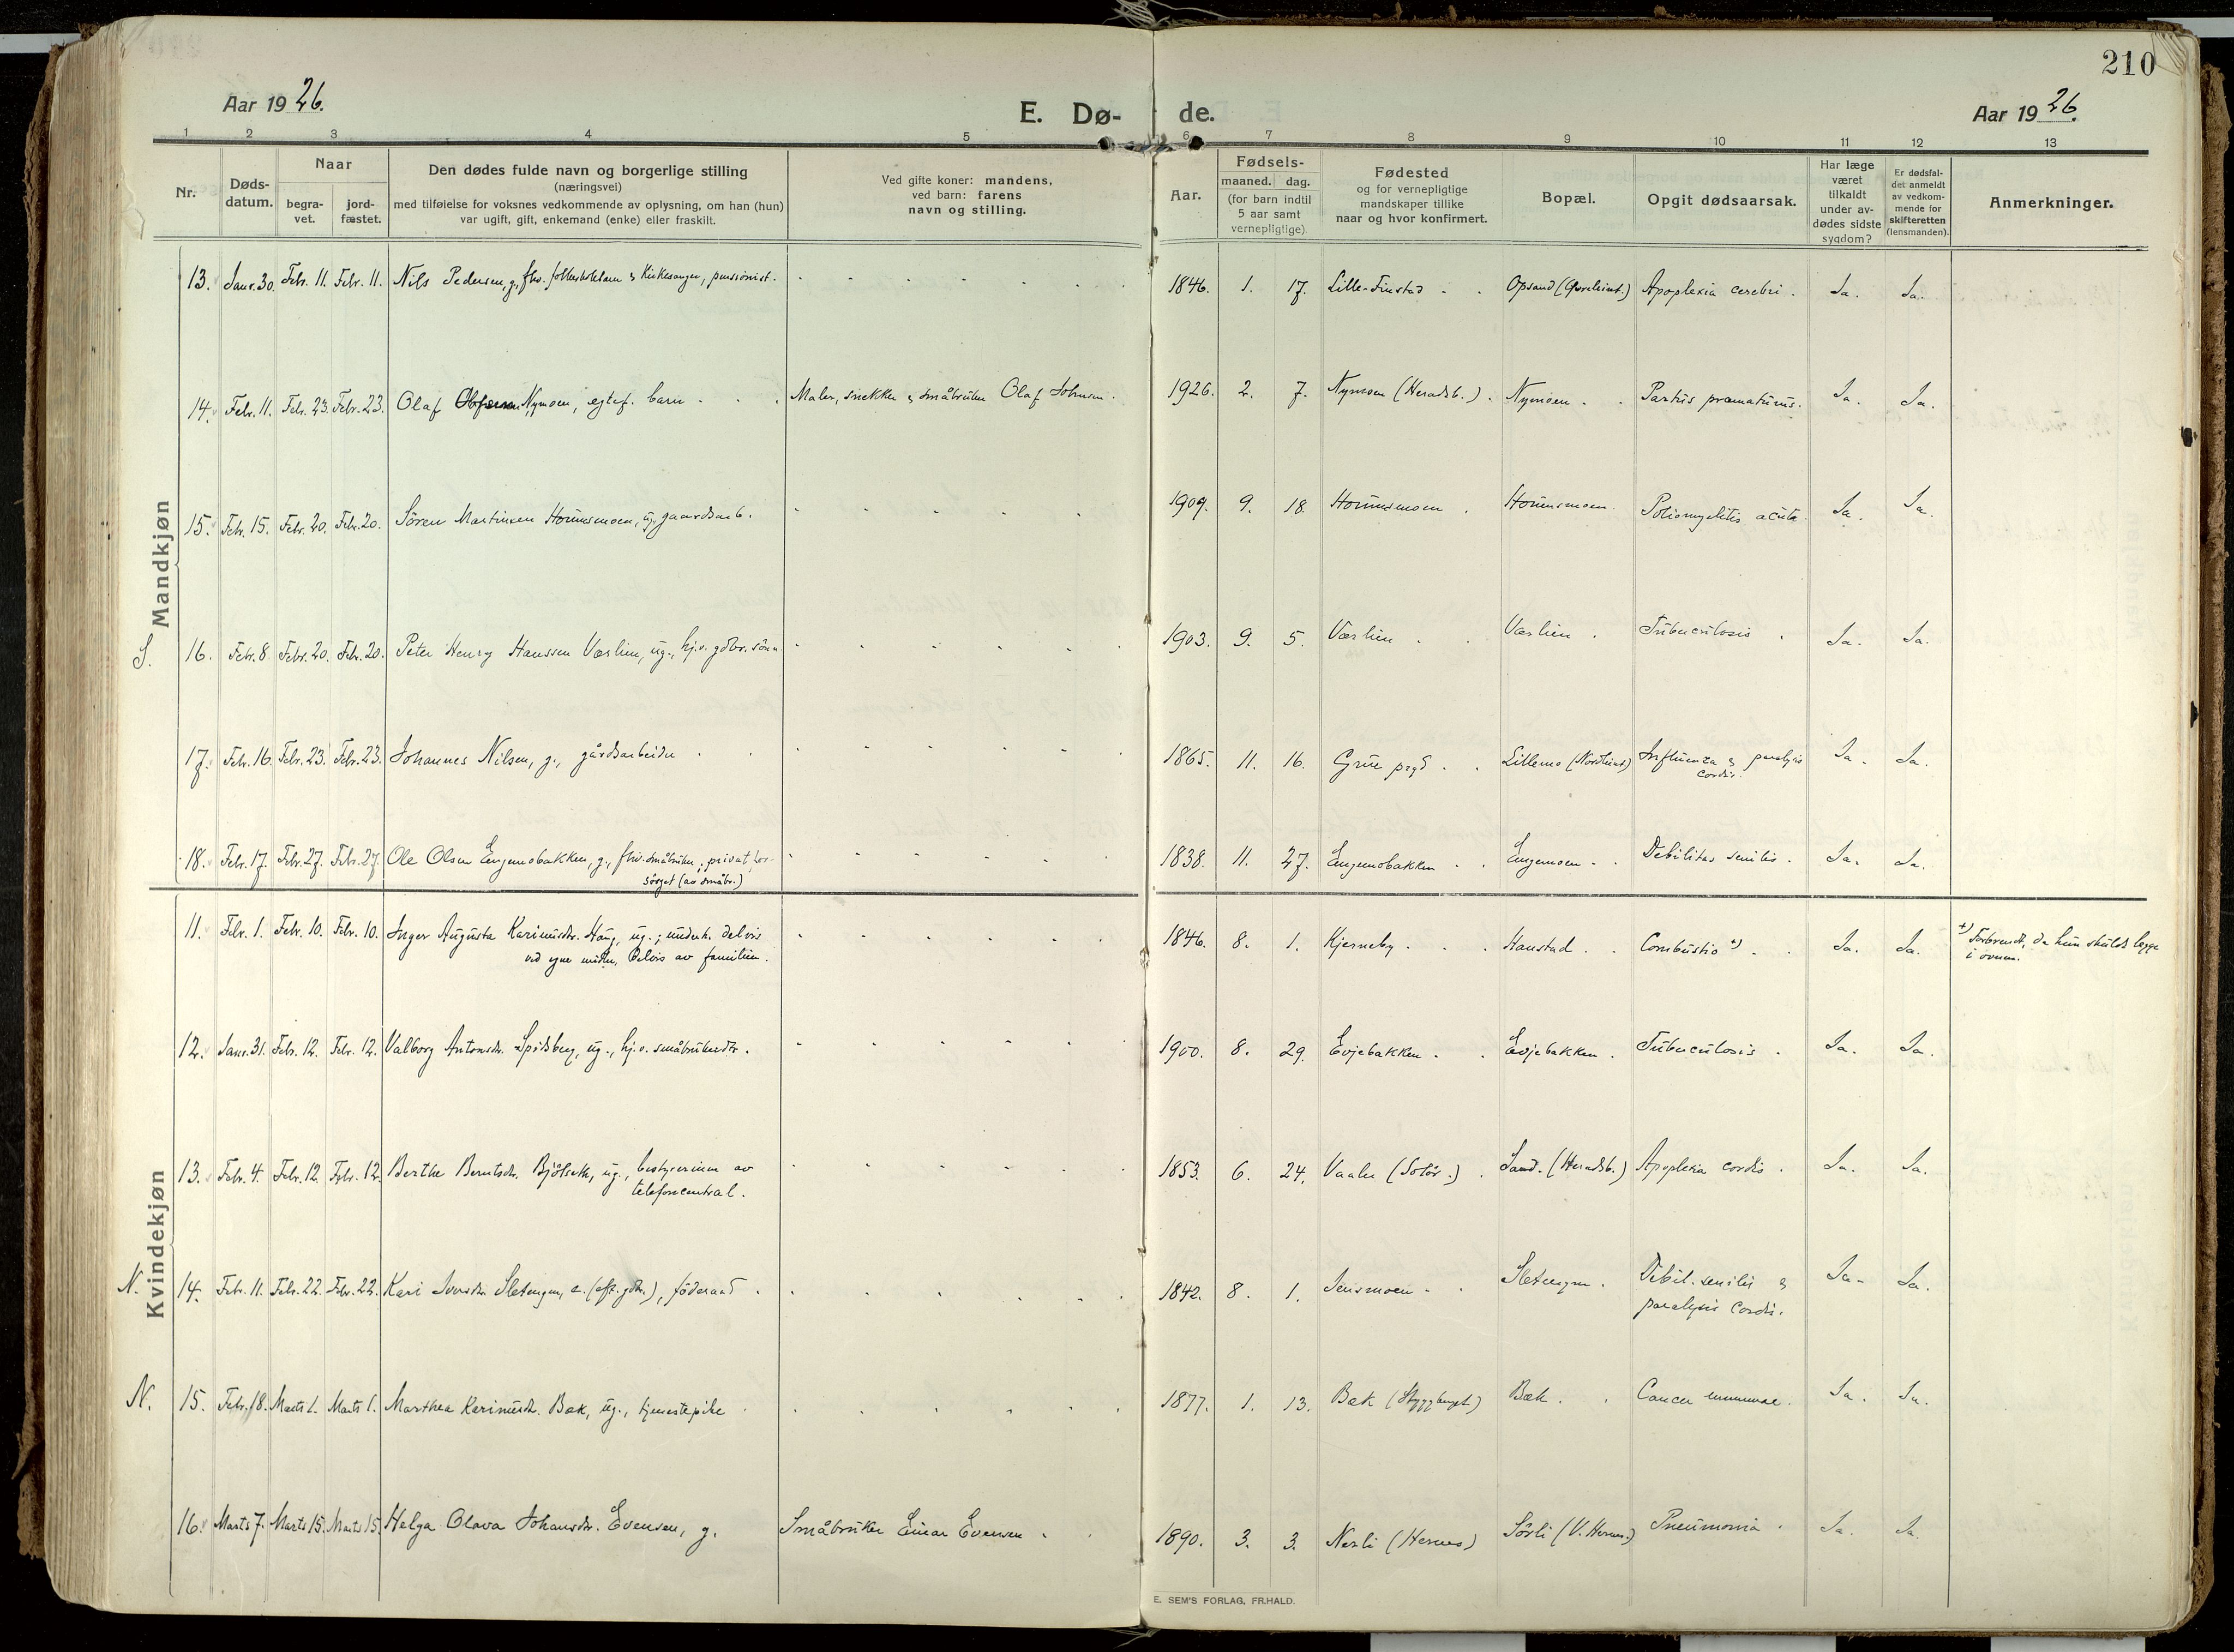 210
Aar 1926. E. Dø- de. Aar 1926.
1 2 3 4 5 6 7 8 9 10 11 12 13
Nr.
Døds-
datum.
Naar
begra-
vet.
jord-
fæstet.
Den dødes fulde navn og borgerlige stilling
(næringsvei)
med tilføielse for voksnes vedkommende av oplysning, om han (hun)
var ugift, gift, enkemand (enke) eller fraskilt.
Ved gifte koner: mandens,
ved barn: farens
navn og stilling.
Aar.
Fødsels-
maaned. dag.
(for barn indtil
5 aar samt
vernepligtige)
Fødested
og for vernepligtige
mandskaper tillike
naar og hvor konfirmert.
Bopæl.
Opgit dødsaarsak.
Har læge
været
tilkaldt
under av-
dødes sidste
sygdom?
Er dødsfal-
det anmeldt
av vedkom-
mende for
skifteretten
(lensmanden).
Anmerkninger.
Mandkjøn
13. Janr. 30. Febr. 11. Febr. 11. Nils Pedersen, g., fhv. & Kirkesanger, pensionist. 1846. 1. 17. Lille-Finstad Opsand Apoplexia cerebri. Ja. Ja.
14. Febr. 11. Febr. 23. Febr. 23. Olaf Nymoen, egtef. barn Maler, snekker & småbruker Olaf Johnsen. 1926. 2. 7. Nymoen (Heradsb.) Nymoen Partus præmaturus. Ja. Ja.
15. Febr. 15. Febr. 20. Febr. 20. Sören Martinsen Hornsmoen, ug., gaardsarb. 1909. 9. 18. Hornsmoen Hornsmoen Poliomyelitis acuta. Ja. Ja.
S. 16. Febr. 8 Febr. 20. Febr. 20. Peter Henry Hanssen Værlien, ug., hj.v. gdbr. sönn 1903. 9. 5. Værlien Værlien Tuberculosis Ja. Ja.
17. Febr. 16. Febr. 23. Febr. 23. Johannes Nilsen, g., gårdsarbeider 1865. 11. 16. Grue prgd. Lillemo (Nordhuet) Influenza & paralysis
cordis. Ja. Ja.
18. Febr. 17. Febr. 27. Febr. 27. Ole Olsen Engemobakken, g., fhv. småbruker, privat for-
sörget (av småbr.) 1838. 11. 27. Engemobakken Engemoen Debilitas senilis. Ja. Ja.
Kvindekjøn
11. Febr. 1. Febr. 10. Febr. 10. Inger Augusta Karinusdr. Haug, ug.; underh. delvis
ved egne midler, delvis av familien. 1846. 8. 1. Kjerneby Hanstad Combustio +) Ja. Ja. +) Forbrendt, da hun skulde lægge
i ovnen.
12. Janr. 31. Febr. 12. Febr. 12. Valborg Antonsdr. Spidsberg, ug., hj.v. småbrukerdtr. 1900. 8. 29. Evjebakken Evjebakken Tuberculosis Ja. Ja.
13. Febr. 4. Febr. 12. Febr. 12. Berthe Berntsdr. Bjölseth, ug., bestyrerinne av
telefoncentral. 1853. 6. 24. Vaaler (Solör.) Sand. (Heradsb.) Apoplexia cordis. Ja. Ja.
N. 14. Febr. 11. Febr. 22. Febr. 22. Kari Iversdr. Sletengen, e. (eft. gdbr.), föderaad 1842. 8. 1. Jensmoen Sletengen. Debil. senilis &
paralysis cordis. Ja. Ja.
N. 15. Febr. 18. Marts 1. Marts 1. Marthea Karinusdr. Bæk, ug., tjenestepike 1877. 1. 13. Bæk Bæk Cancer mammae. Ja. Ja.
16. Marts 7. Marts 15. Marts 15. Helga Olava Johansdr. Evensen, g. Småbruker Einar Evensen 1890. 3. 3. Nerli (Hernes) Sörli (V. Hernes.) Pneumonia Ja. Ja.
E. SEM'S FORLAG, FR.HALD.